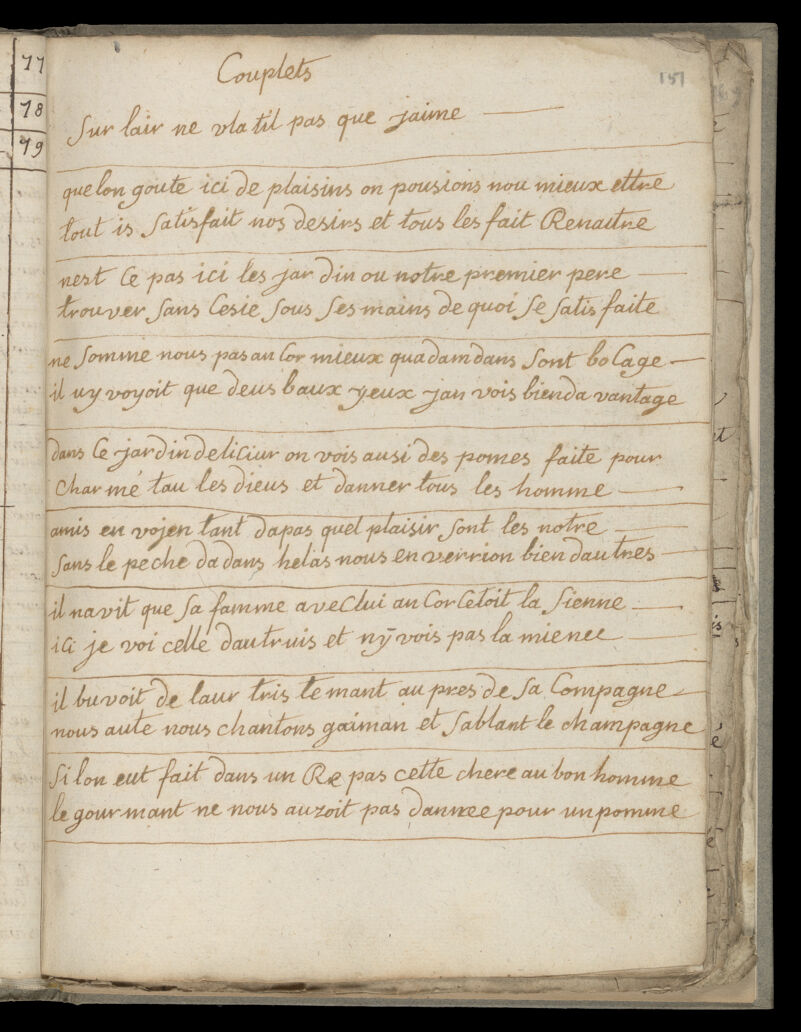 77
78
79
151
Couplets
Sur lair ne vla til pas que jaime
quelon goute ici de plaisins on pousions nou mieux ettre
tout is Satisfait nos desirs et tous les fait Renaitre
nest Ce pas ici les jar din ou notre premier pere
trouver Sans Cesie Sous Ses mains de quoi Se Satis faite
ne Somme nous pas an Cor mieux quadamdans Sont bocage
il uy voyoit que deus baux yeux jan vois bien da vantage
dans Ce jardin deliciur on vois ausi des pomes faite pour
Charmé tau les dieus et danner tous les homme
amis en vojen tant dapas quel plaisir Sont les notre
Sans le peche dadans helas nous en verrion bien dautres
il navit que Sa famme avec lui an Cor Cetoit la Sienne
ici je voi celle dautruis et ny vois pas la mienee
il buvoit de laur tris te mant au pres de Sa Compagne
nous aute nous chantons gaiman et Sablant le champagne
Si lon eut fait dans un Re pas cette chere au bon homme
le gourmant ne nous auzoit pas dannee pour un pomme